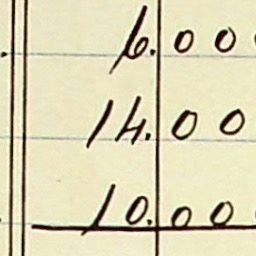 6.00
14.00
10.00